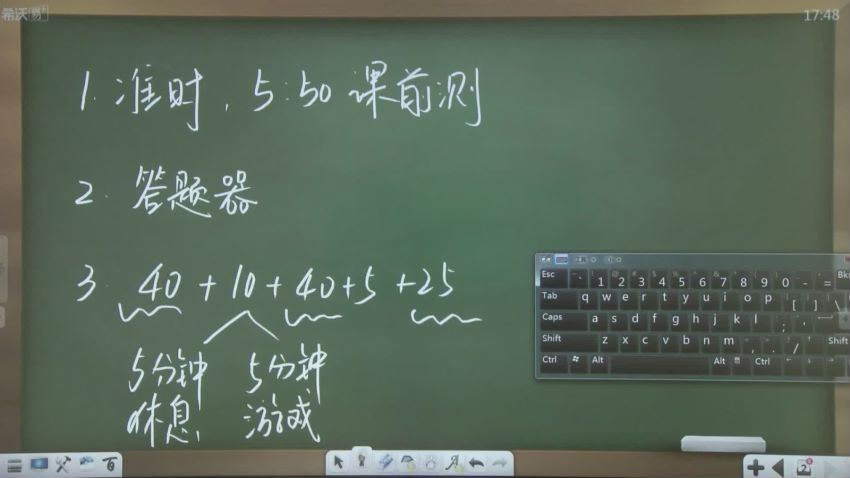 希沃易+
17:48
1. 准时，5:50 课前测
2. 答题器
3. 40+10+40+5+25
5分钟 5分钟
休息, 游戏
Esc ` 1 2 3 4 5 6 7 8 9 0 - = Bk
Tab q w e r t y u i o p [ ] \
Caps a s d f g h j k l ; '
Shift z x c v b n m , . / Shift
Ctrl Alt Alt Ctrl
2